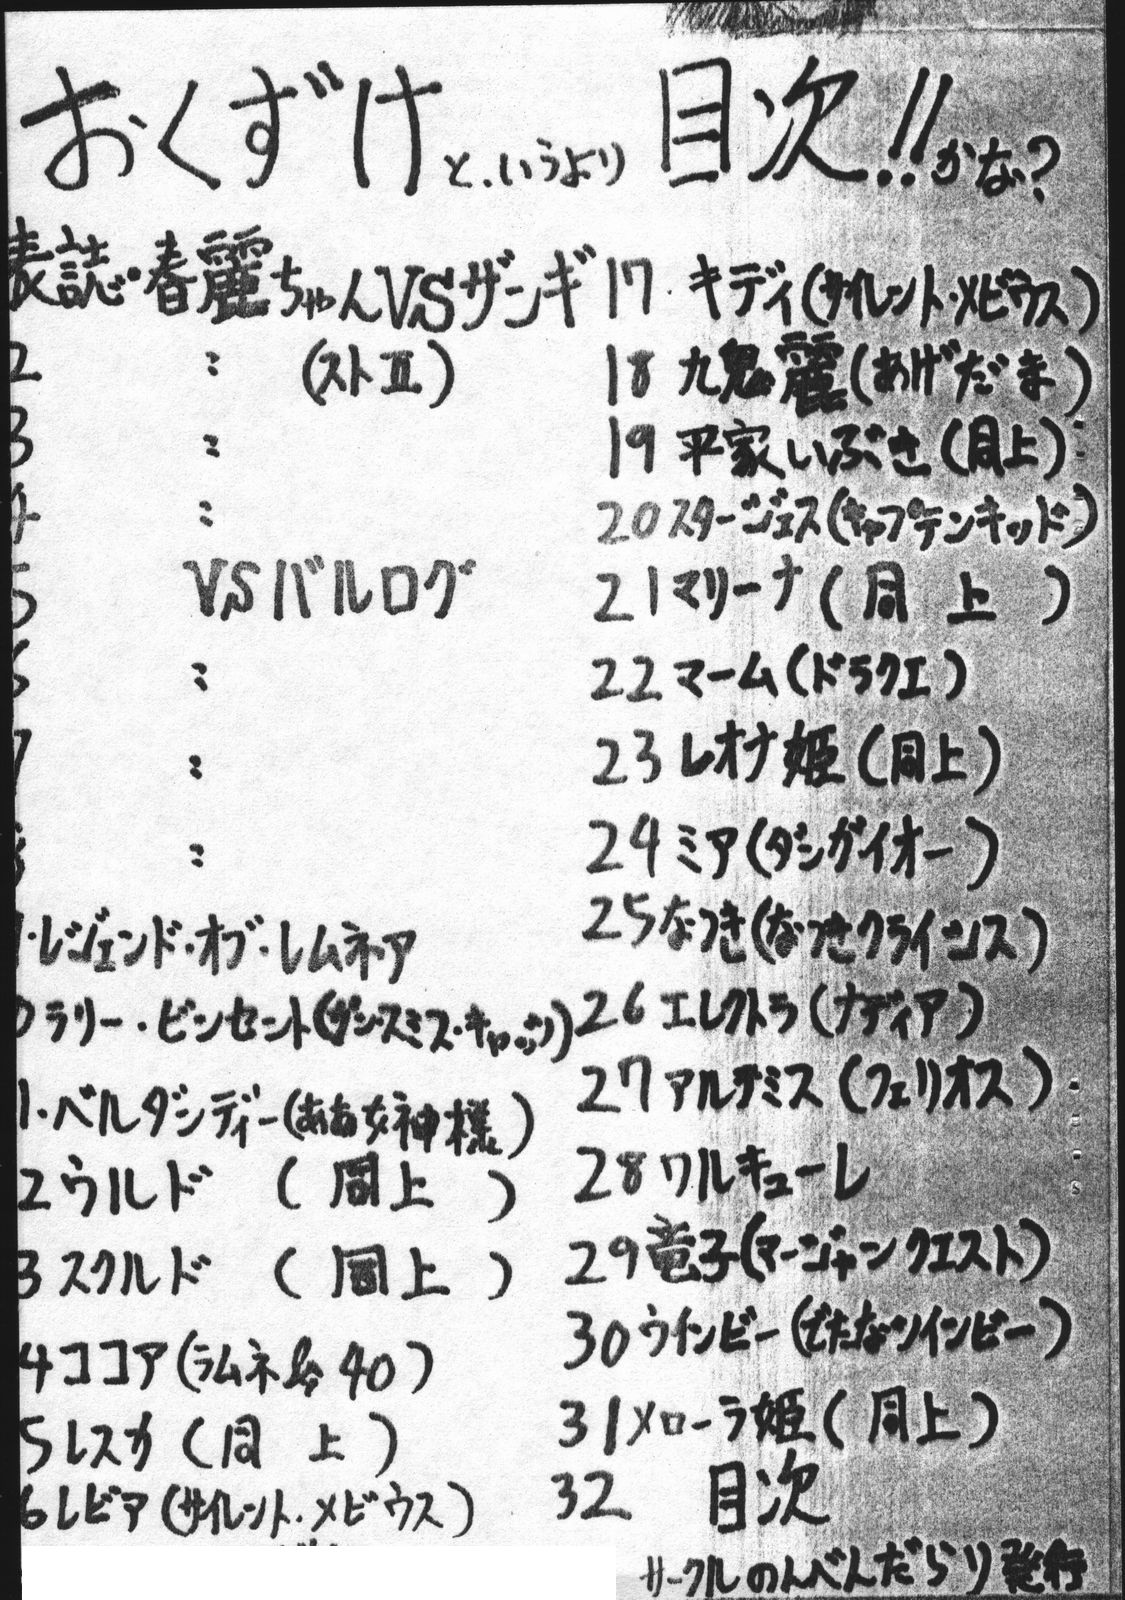 おくずけと、いうより 目次!!かな?
表誌・春麗ちゃんVSザンギ
2 〃 (ストII)
3 〃
4 〃
5 VSバルログ
6 〃
7 〃
8 〃
・レジェンド・オブ・レムネア
0 ラリー・ビンセント(ガン・スミス・キャッツ)
1・ベルダンディー(ああ女神様)
2 ウルド (同上)
3 スクルド (同上)
4 ココア(ラムネ&40)
5 レスカ(同上)
6 レビア(サイレント・メビウス)
17 キディ(サイレント・メビウス)
18 九鬼麗(あげだま)
19 平家いぶき(同上)
20 スタージェス(キャプテンキッド)
21 マリーナ(同上)
22 マーム(ドラクエ)
23 レオナ姫(同上)
24 ミア(ダンガイオー)
25 なつき(なつきクライシス)
26 エレクトラ(ナディア)
27 アルテミス(フェリオス)
28 ワルキューレ
29 竜子(マージャンクエスト)
30 ウインビー(でたなツインビー)
31 メローラ姫(同上)
32 目次
サークルのんべんだらり発行